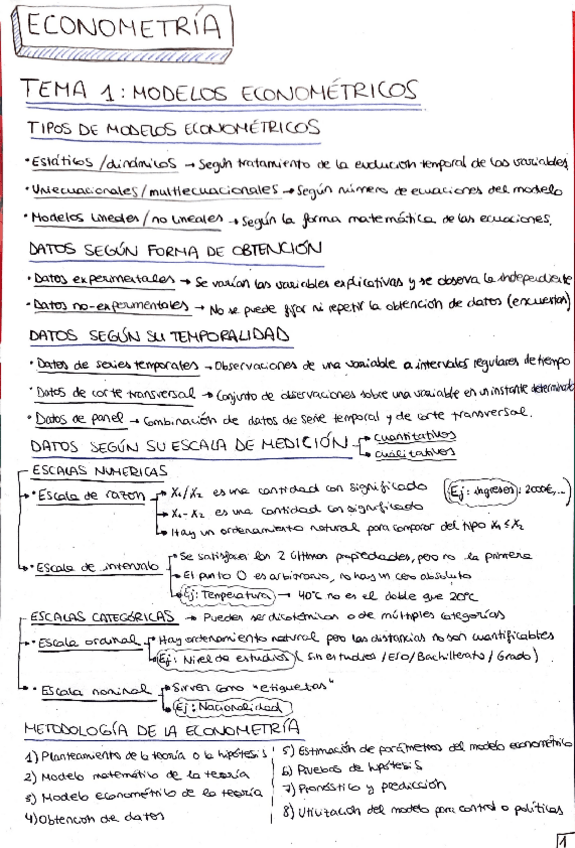 ECONOMETRÍA
TEMA 1: MODELOS ECONOMÉTRICOS
TIPOS DE MODELOS ECONOMÉTRICOS
• Estáticos / dinámicos → Según tratamiento de la evolución temporal de las variables
• Uniecuacionales / multiecuacionales → Según número de ecuaciones del modelo
• Modelos lineales / no lineales → Según la forma matemática de las ecuaciones.
DATOS SEGÚN FORMA DE OBTENCIÓN
• Datos experimentales → Se varían las variables explicativas y se observa la independiente
• Datos no-experimentales → No se puede fijar ni repetir la obtención de datos (encuestas)
DATOS SEGÚN SU TEMPORALIDAD
• Datos de series temporales → Observaciones de una variable a intervalos regulares de tiempo
• Datos de corte transversal → Conjunto de observaciones sobre una variable en un instante determinado
• Datos de panel → Combinación de datos de serie temporal y de corte transversal.
DATOS SEGÚN SU ESCALA DE MEDICIÓN → cuantitativos
→ cualitativos
ESCALAS NUMERICAS
• Escala de razón → X₁/X₂ es una cantidad con significado (Ej: ingresos): 2000€,...
→ X₁-X₂ es una cantidad con significado
→ Hay un ordenamiento natural para comparar del tipo X₁ ≤ X₂
• Escala de intervalo → • Se satisfacen las 2 últimas propiedades, pero no la primera
→ • El punto 0 es arbitrario, no hay un cero absoluto
→ Ej: Temperatura → 40°C no es el doble que 20°C
ESCALAS CATEGÓRICAS → Pueden ser dicotómicas o de múltiples categorías
• Escala ordinal → • Hay ordenamiento natural pero las distancias no son cuantificables
→ Ej: Nivel de estudios (Sin estudios / ESO / Bachillerato / Grado)
• Escala nominal → • Sirven como "etiquetas"
→ Ej: Nacionalidad
METODOLOGÍA DE LA ECONOMETRÍA
1) Planteamiento de la teoría o la hipótesis
2) Modelo matemático de la teoría
3) Modelo econométrico de la teoría
4) Obtención de datos
5) Estimación de parámetros del modelo econométrico
6) Pruebas de hipótesis
7) Pronóstico y predicción
8) Utilización del modelo para control o políticas
1